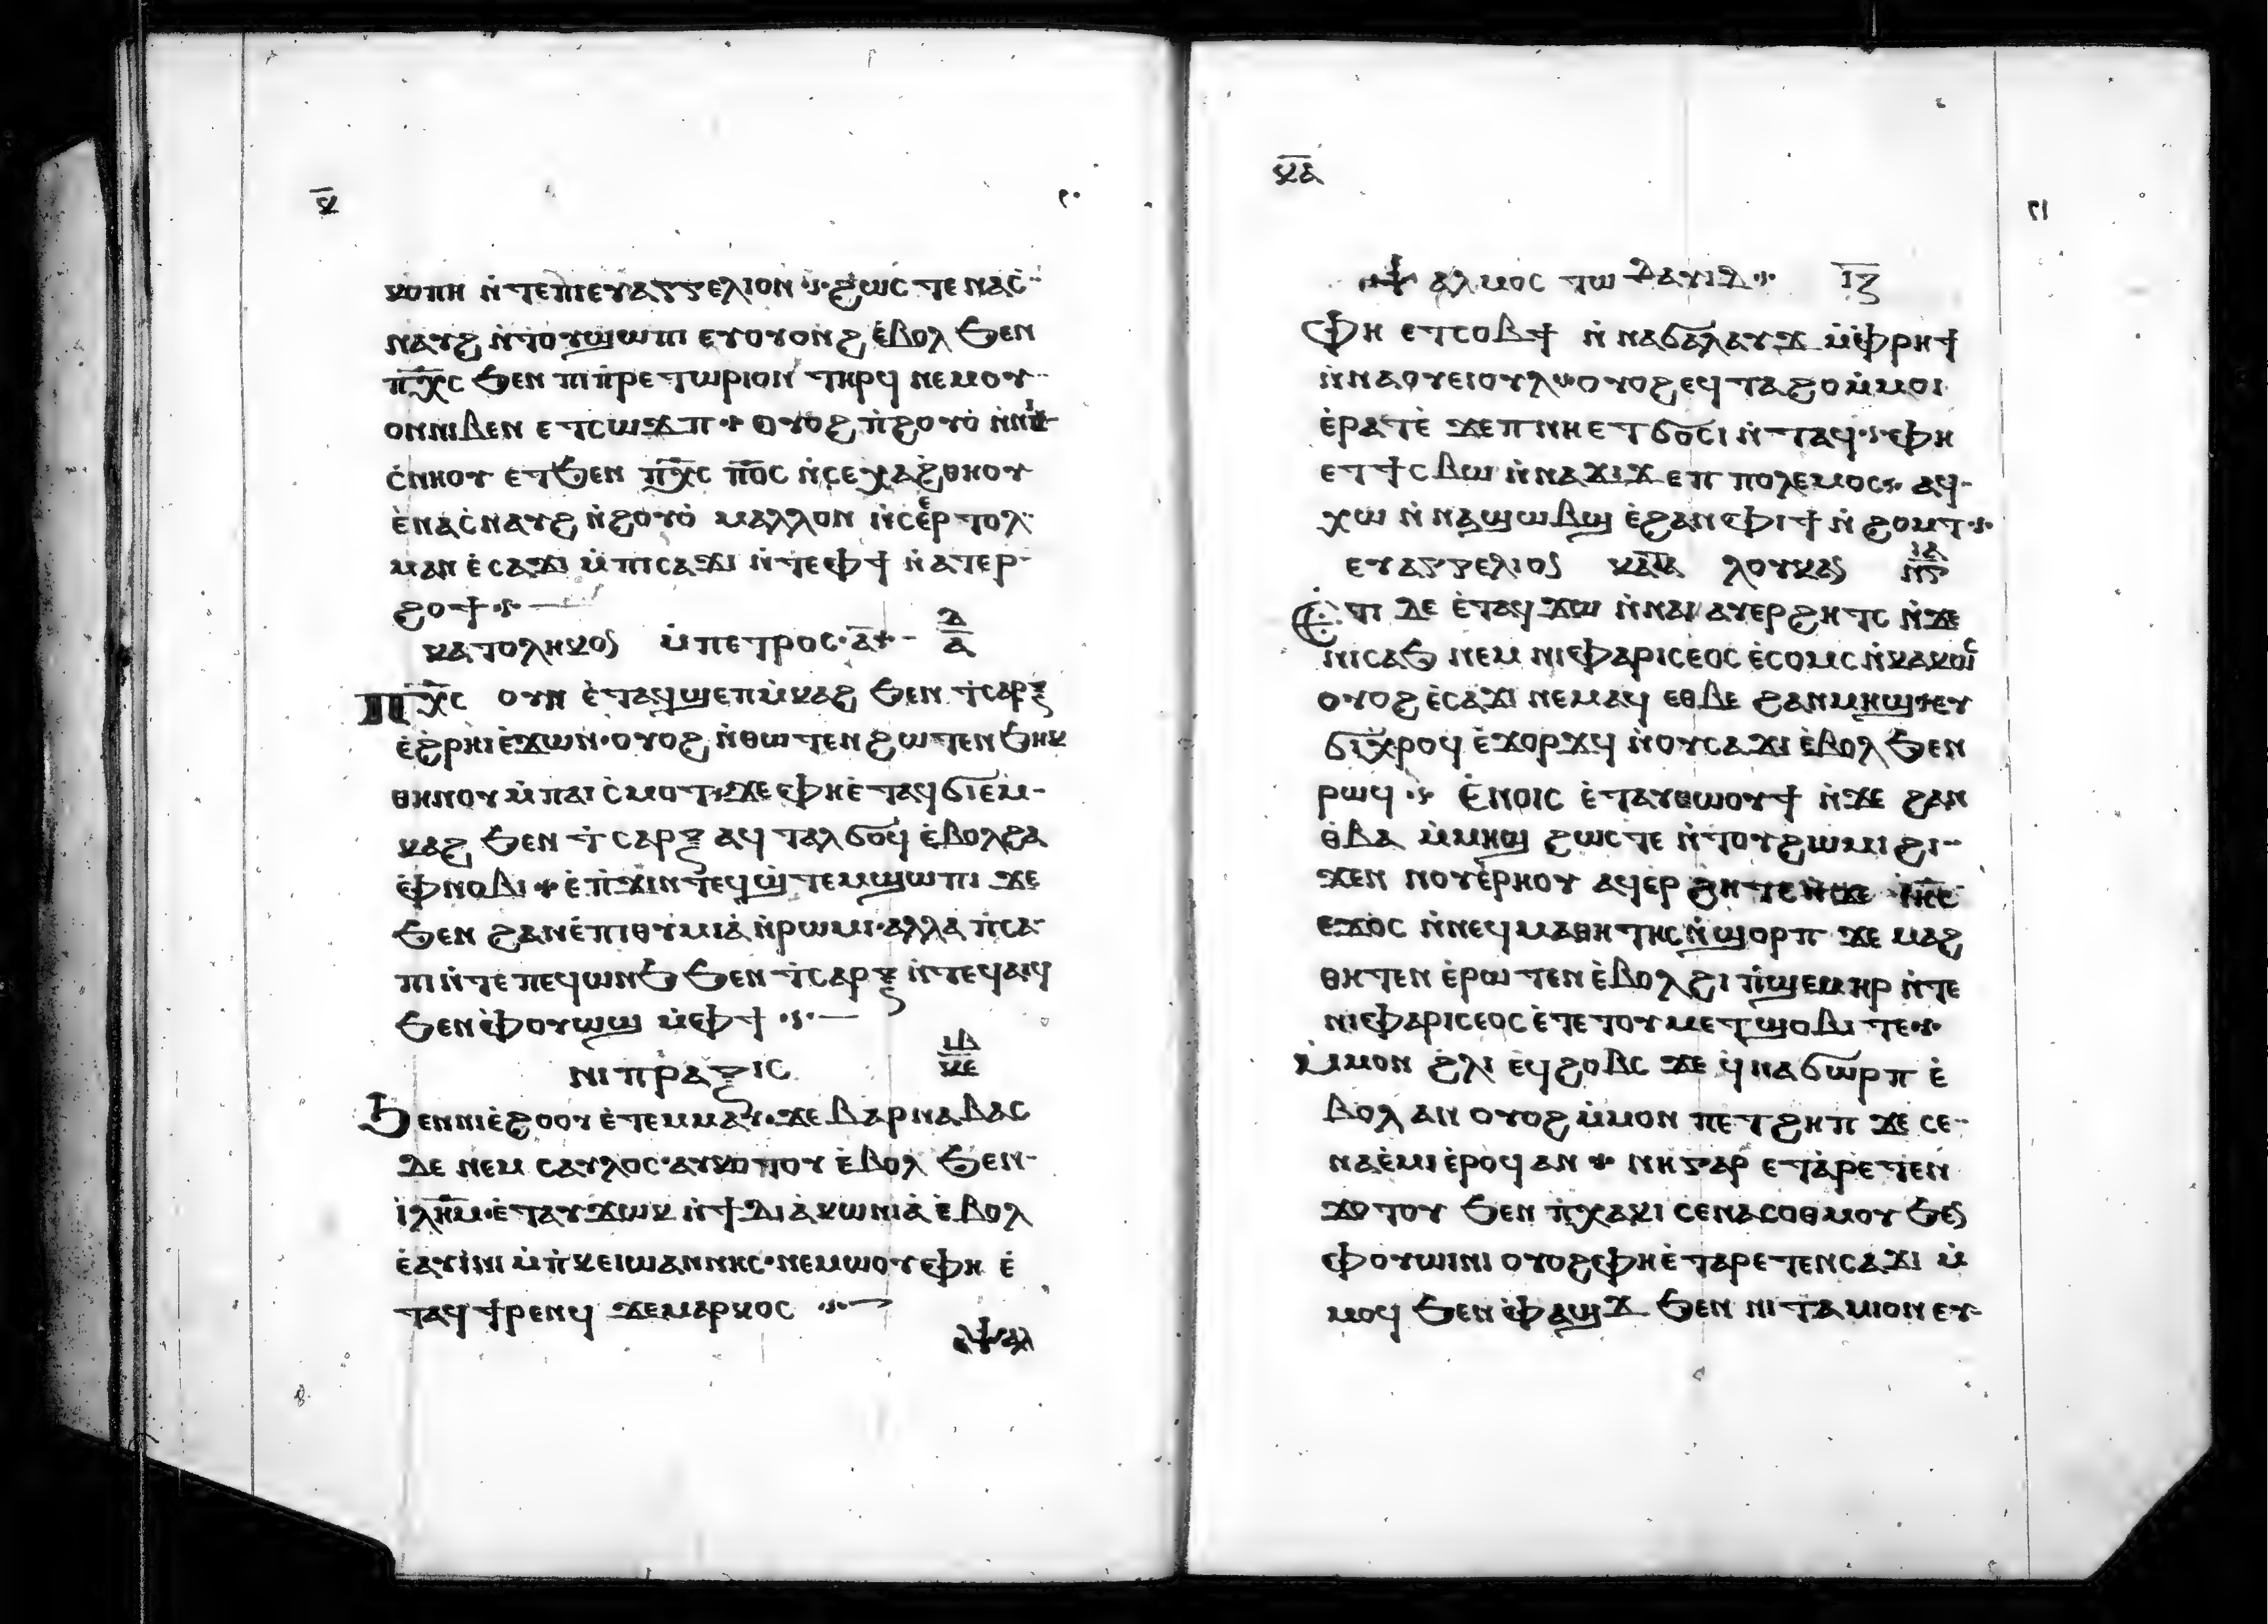 ⲕ̅
ⲕⲟⲡⲏ ⲛ̀ⲧⲉⲡⲓⲉⲩⲁⲅⲅⲉⲗⲓⲟⲛ ⲍⲱⲥⲧⲉ ⲛⲁⲥ̀
ⲛⲁⲩϩ ⲛ̀ⲧⲟⲩϣⲱⲡⲓ ⲉⲩⲟⲩⲟⲛϩ ⲉ̀ⲃⲟⲗ ϧⲉⲛ
ⲡⲭ̅ⲥ ϧⲉⲛ ⲡⲓⲡ̀ⲣⲉⲧⲱⲣⲓⲟⲛ ⲧⲏⲣϥ ⲛⲉⲙⲟⲩ
ⲟⲛⲛⲓⲃⲉⲛ ⲉⲧⲥⲱϫⲡ · ⲟⲩⲟϩ ⲡ̀ϩⲟⲩⲟ̀
ⲥ̀ⲛⲏⲟⲩ ⲉⲧϧⲉⲛ ⲡⲭ̅ⲥ ⲡⲟ̅ⲥ ⲛ̀ⲥⲉⲭⲁϩ̀ⲑⲏⲟⲩ
ⲉ̀ⲛⲁⲥ̀ⲛⲁⲩϩ ⲛ̀ϩⲟⲩⲟ̀ ⲙⲁⲗⲗⲟⲛ ⲛ̀ⲥⲉⲉ̀ⲣⲧⲟⲗ
ⲙⲁⲛ ⲉ̀ⲥⲁϫⲓ ⲙ̀ⲡⲓⲥⲁϫⲓ ⲛ̀ⲧⲉⲫϯ ⲛ̀ⲁⲧⲉⲣ
ϩⲟϯ
ⲕⲁⲧⲟⲗⲏⲕⲟⲥ ⲙ̀ⲡⲉⲧⲣⲟⲥ · ⲁ̅ ⲇ̅ ⲁ
ⲡⲭ̅ⲥ ⲟⲩⲛ ⲉ̀ⲧⲁϥϣⲉⲡⲙ̀ⲕⲁϩ ϧⲉⲛ ⲧ̀ⲥⲁⲣⲝ
ⲉ̀ϩ̀ⲣⲏⲓⲉ̀ϫⲱⲛ · ⲟⲩⲟϩ ⲛ̀ⲑⲱⲧⲉⲛ ϩⲱⲧⲉⲛ ϧⲏⲕ
ⲑⲏⲛⲟⲩ ⲙ̀ⲡⲁⲓⲥ̀ⲙⲟⲧ · ϫⲉⲫⲏⲉ̀ⲧⲁϥϭⲓⲉⲙ
ⲕⲁϩ ϧⲉⲛ ⲧ̀ⲥⲁⲣⲝ ⲁϥⲧⲁⲗϭⲟϥ ⲉ̀ⲃⲟⲗϩⲁ
ⲉ̀ⲫⲛⲟⲃⲓ · ⲉ̀ⲡ̀ϫⲓⲛⲧⲉϥϣ̀ⲧⲉⲙϣⲱⲡⲓ ϫⲉ
ϧⲉⲛ ϩⲁⲛⲉ̀ⲡⲓⲑⲩⲙⲓⲁ̀ ⲛ̀ⲣⲱⲙⲓ · ⲁⲗⲗⲁ ⲡ̀ⲥⲁ
ⲡⲓ ⲛ̀ⲧⲉ ⲡⲉϥⲱⲛϧ ϧⲉⲛ ⲧ̀ⲥⲁⲣⲝ ⲛ̀ⲧⲉϥⲁⲓϥ
ϧⲉⲛⲉ̀ⲫⲟⲩⲱϣ ⲙ̀ⲉⲫϯ
ⲛⲓⲡⲣⲁⲝⲓⲥ ⲓⲃ̅ ⲕⲉ
ϧⲉⲛⲛⲓⲉ̀ϩⲟⲟⲩ ⲉ̀ⲧⲉⲙⲙⲁⲩ · ϫⲉ ⲃⲁⲣⲛⲁⲃⲁⲥ
ⲇⲉ ⲛⲉⲙ ⲥⲁⲩⲗⲟⲥ · ⲁⲩⲕⲟⲧⲟⲩ ⲉ̀ⲃⲟⲗ ϧⲉⲛ
ⲓ̀ⲗⲏ̅ⲙ · ⲉ̀ⲧⲁⲩϫⲱⲕ ⲛ̀ϯⲇⲓⲁ̀ⲕⲱⲛⲓⲁ̀ ⲉ̀ⲃⲟⲗ
ⲉ̀ⲁⲩⲓ̀ⲛⲓ ⲙ̀ⲡ̀ⲕⲉⲓⲱⲁⲛⲛⲏⲥ · ⲛⲉⲙⲱⲟⲩ ⲉⲫⲏ ⲉ̀
ⲧⲁϥϯⲣⲉⲛϥ ϫⲉⲙⲁⲣⲕⲟⲥ
ⲯⲁⲗ
ⲕ̅ⲁ̅
ⲯⲁⲗⲙⲟⲥ ⲧⲱ ⲇⲁⲩⲓⲇ ⲓ̅ⲍ̅
ⲫⲏ ⲉⲧⲥⲟⲃϯ ⲛ̀ ⲛⲁϭⲁⲗⲁⲩϫ ⲙ̀ⲉ̀ⲫⲣⲏϯ
ⲛ̀ⲛⲁⲟⲩⲉⲓⲟⲩⲗ ⲟⲩⲟϩ ⲉϥⲧⲁϩⲟ ⲙ̀ⲙⲟⲓ
ⲉ̀ⲣⲁⲧⲉ̀ ϫⲉⲡ ⲛⲏⲉⲧϭⲟⲥⲓ ⲛ̀ⲧⲁϥ · ⲉⲫⲏ
ⲉⲧϯⲥⲃⲱ ⲛ̀ⲛⲁϫⲓϫ ⲉⲡ ⲡⲟⲗⲉⲙⲟⲥ · ⲁϥ
ⲭⲱ ⲛ̀ ⲛⲁϣⲱⲃϣ ⲉ̀ϩⲁⲛⲉⲫⲓϯ ⲛ̀ ϩⲟⲙⲧ
ⲉⲩⲁⲅⲅⲉⲗⲓⲟⲥ ⲕⲁⲧⲁ ⲗⲟⲩⲕⲁⲥ
ⲉⲧⲓ ⲇⲉ ⲉ̀ⲧⲁϥϫⲱ ⲛ̀ⲛⲁⲓ ⲁⲩⲉⲣϩⲏⲧⲥ ⲛ̀ϫⲉ
ⲛⲓⲥⲁϧ ⲛⲉⲙ ⲛⲓⲉⲫⲁⲣⲓⲥⲉⲟⲥ ⲉ̀ⲥⲟⲙⲥ ⲛ̀ⲕⲁⲕⲟⲓⲥ
ⲟⲩⲟϩ ⲉ̀ⲥⲁϫⲓ ⲛⲉⲙⲁϥ ⲉⲑⲃⲉ ϩⲁⲛⲙⲏϣ ⲉⲩ
ϭⲓⲭⲣⲟϥ ⲉ̀ϫⲟⲣϫϥ ⲛ̀ⲟⲩⲥⲁϫⲓ ⲉ̀ⲃⲟⲗ ϧⲉⲛ
ⲣⲱϥ · ⲉ̀ⲛⲟⲓⲥ ⲉ̀ⲧⲁⲩⲑⲱⲟⲩϯ ⲛ̀ϫⲉ ϩⲁⲛ
ⲑ̀ⲃⲁ ⲙ̀ⲙⲏϣ ϩⲱⲥⲧⲉ ⲛ̀ⲧⲟⲩϩⲱⲙⲓ ϩⲓ
ϫⲉⲛ ⲛⲟⲩⲉ̀ⲣⲏⲟⲩ ⲁϥⲉⲣ
ⲉϫⲟⲥ ⲛ̀ⲛⲉϥⲙⲁⲑⲏⲧⲏⲥ ⲛ̀ϣⲟⲣⲡ ϫⲉ ⲙⲁϩ
ⲑⲏⲧⲉⲛ ⲉ̀ⲣⲱⲧⲉⲛ ⲉ̀ⲃⲟⲗϩⲓ ⲡ̀ϣⲉⲙⲏⲣ ⲛ̀ⲧⲉ
ⲛⲓⲉⲫⲁⲣⲓⲥⲉⲟⲥ ⲉ̀ⲧⲉ ⲧⲟⲩⲙⲉⲧϣⲟⲃⲓ ⲧⲉ
ⲙ̀ⲙⲟⲛ ϩ̀ⲗⲓ ⲉϥϩⲟⲃⲥ ϫⲉ ϥ̀ⲛⲁϭⲱⲣⲡ ⲉ̀
ⲃⲟⲗ ⲁⲛ ⲟⲩⲟϩ ⲙ̀ⲙⲟⲛ ⲡⲉⲧϩⲏⲡ ϫⲉ ⲥⲉ
ⲛⲁⲉ̀ⲙⲓ ⲉ̀ⲣⲟϥ ⲁⲛ · ⲛⲏ ⲅⲁⲣ ⲉⲧⲁ̀ⲣⲉⲧⲉⲛ
ϫⲟⲧⲟⲩ ϧⲉⲛ ⲡ̀ⲭⲁⲕⲓ ⲥⲉⲛⲁⲥⲟⲑⲙⲟⲩ ϧⲉⲛ
ⲉⲫⲟⲩⲱⲓⲛⲓ ⲟⲩⲟϩ ⲉⲫⲏ ⲉ̀ⲧⲁⲣⲉⲧⲉⲛⲥⲁϫⲓ ⲙ̀
ⲙⲟϥ ϧⲉⲛ ⲉ̀ⲫⲁϣϫ ϧⲉⲛ ⲛⲓⲧⲁⲙⲓⲟⲛ ⲉⲩ